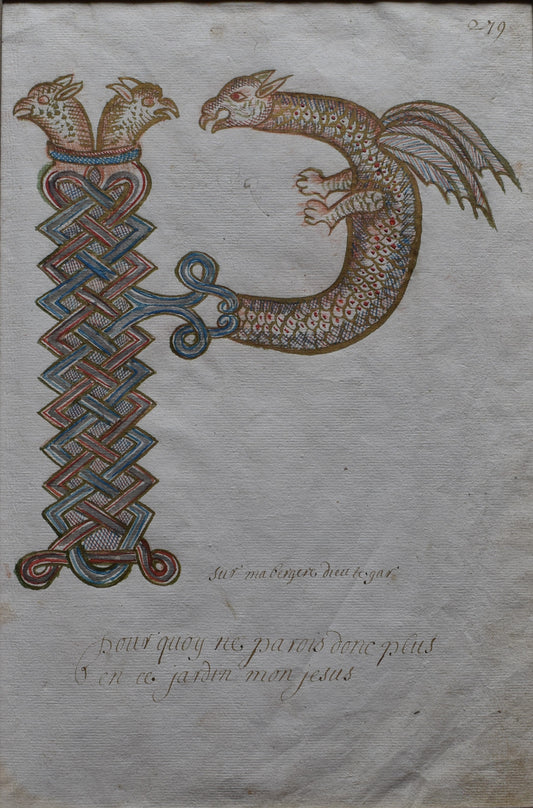 279
P
sur ma bergere dieu te gar
Pour quoy ne parois donc plus
en ce jardin mon jesus